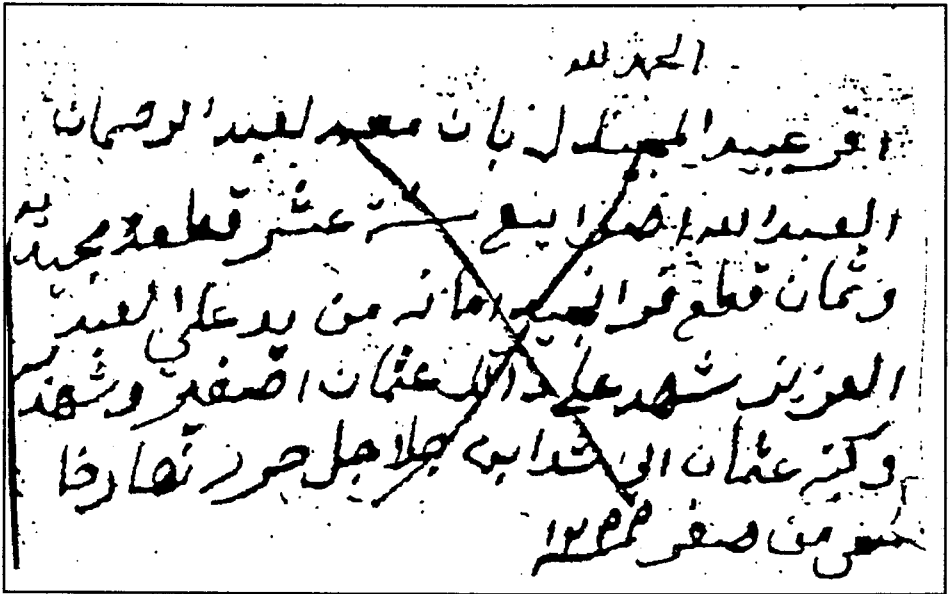 الحمد لله
اقر عبيد المبيدل بان معه لعبد الرحمان
العبدالله اضنا ينبع ستة عشر قطعة مجيديه
وثمان قطع قرانيه امانه من يد علي العبد
العزيز شهد على ذالك عثمان اصغير وشهد
وكتبه عثمان ابن جلاجل حرر نهار خا
من صفر ١٢٣٣